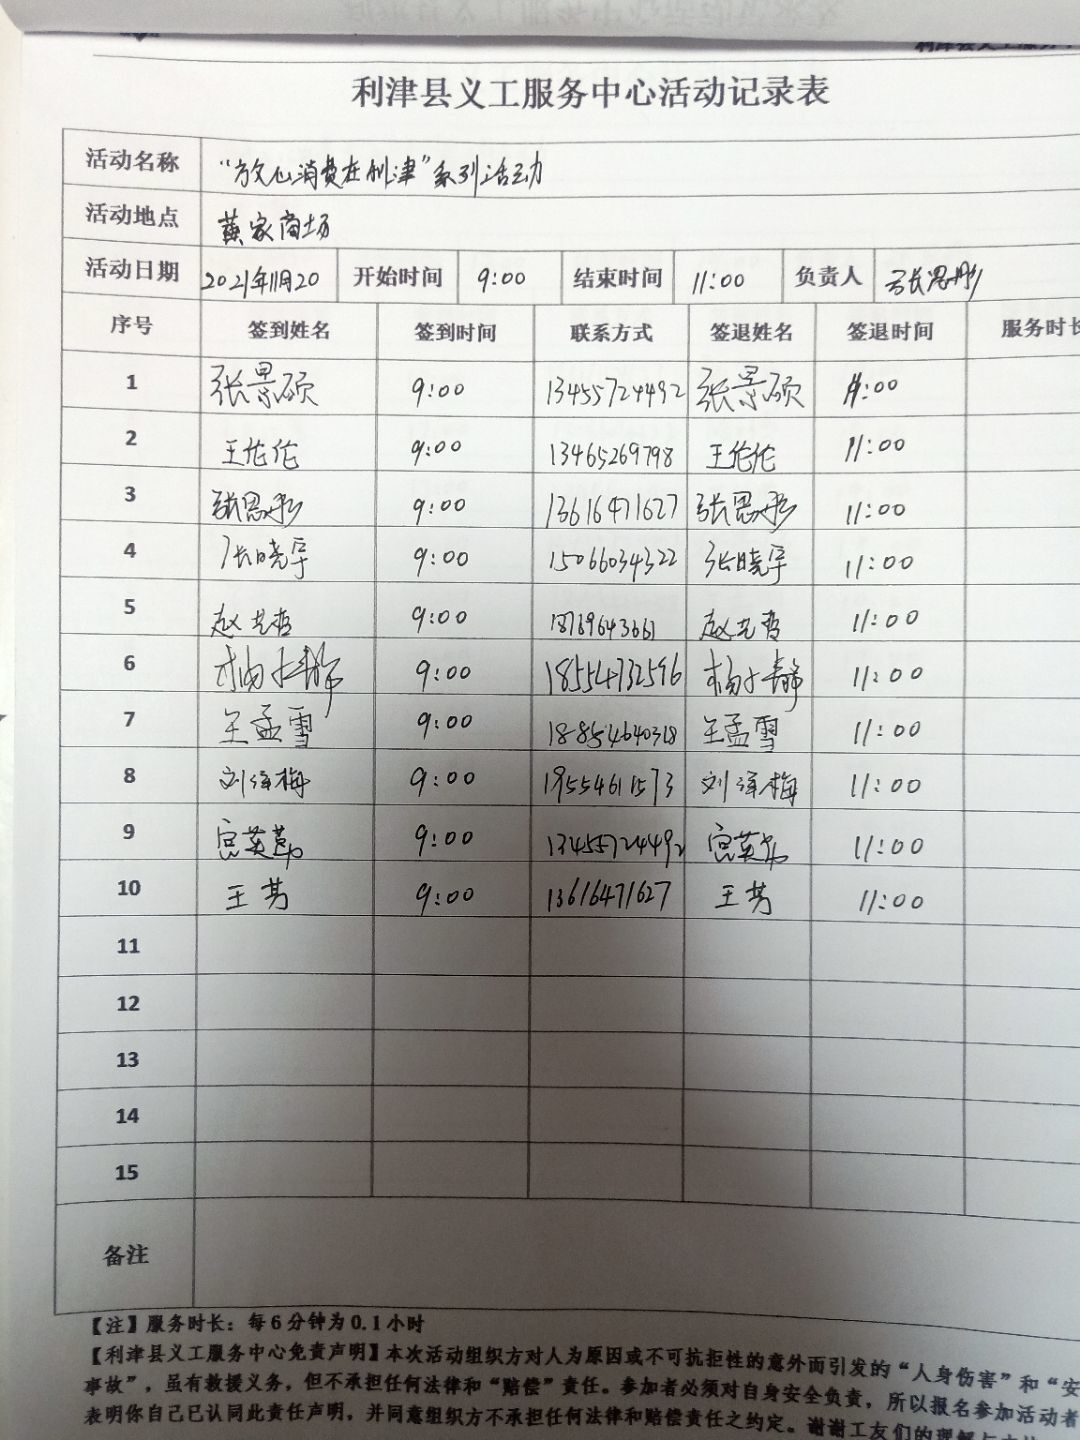 利津县义工服务中心活动记录表
活动名称 “放心消费在利津”系列活动
活动地点 黄家商场
活动日期 2021年11月20 开始时间 9:00 结束时间 11:00 负责人 张思彤
序号 签到姓名 签到时间 联系方式 签退姓名 签退时间 服务时长
1 张景硕 9:00 13455724492 张景硕 11:00
2 王伦伦 9:00 13465269798 王伦伦 11:00
3 张思彤 9:00 13616471627 张思彤 11:00
4 张晓宇 9:00 15066034322 张晓宇 11:00
5 9:00 18769643661 11:00
6 9:00 18554732596 11:00
7 王孟雪 9:00 18854640318 王孟雪 11:00
8 刘泽梅 9:00 19554611573 刘泽梅 11:00
9 9:00 13455724492 11:00
10 王芳 9:00 13616471627 王芳 11:00
11
12
13
14
15
备注
【注】服务时长：每6分钟为0.1小时
【利津县义工服务中心免责声明】本次活动组织方对人为原因或不可抗拒性的意外而引发的“人身伤害”和“安
事故”，虽有救援义务，但不承担任何法律和“赔偿”责任。参加者必须对自身安全负责，所以报名参加活动者
表明你自己已认同此责任声明，并同意组织方不承担任何法律和赔偿责任之约定。谢谢工友们的理解与